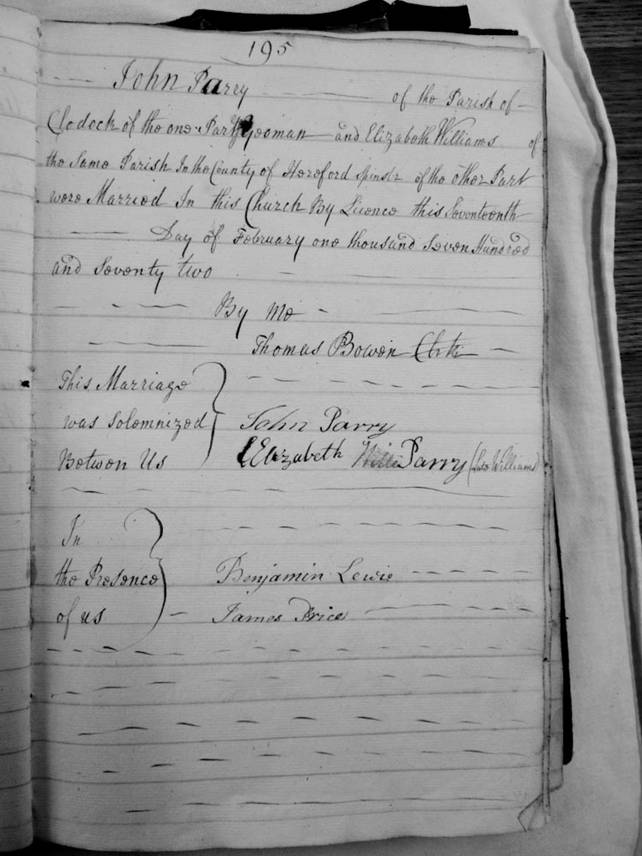 195
John Parry of the Parish of
Clodock of the one Party Yeoman and Elizabeth Williams of
the Same Parish In the County of Hereford Spinstr of the other Part
were Married In this Church By Licence this Seventeenth
Day of February one thousand Seven Hundred
and Seventy two
By Me
Thomas Bowen Clrk
This Marriage
was Solemnized John Parry
Between Us Elizabeth Willi Parry (late Williams)
In
the Presence Benjamin Lewis
of us James Price